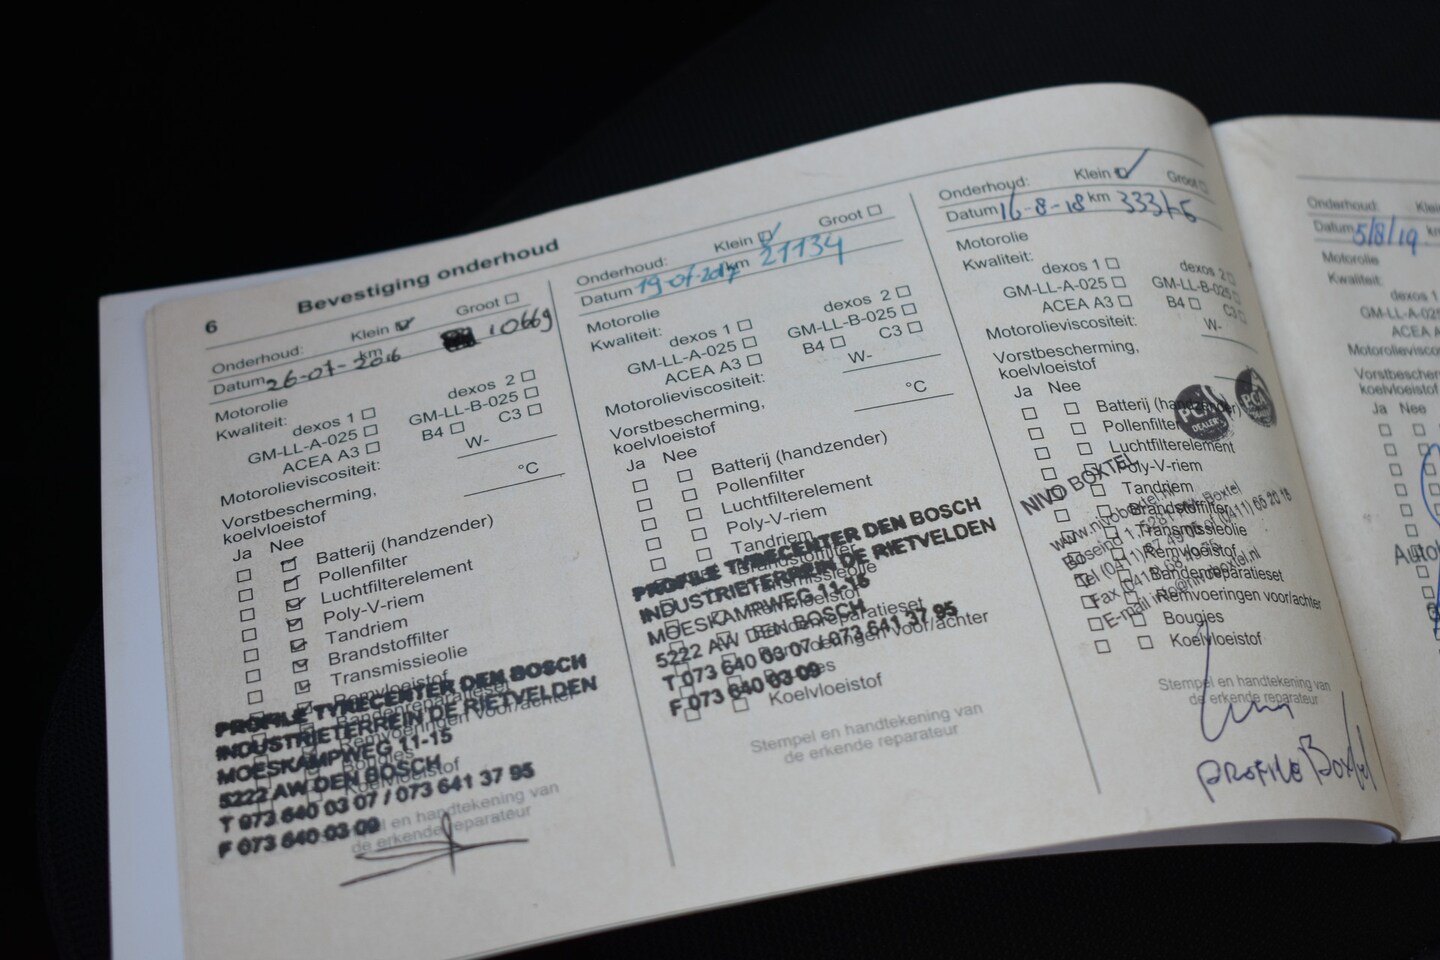 6 Bevestiging onderhoud
Onderhoud: Klein Groot
Datum 26-07-2016 km 10669
Motorolie
Kwaliteit: dexos 1 dexos 2
GM-LL-A-025 GM-LL-B-025
ACEA A3 B4 C3
Motorolieviscositeit: W-
Vorstbescherming,
koelvloeistof °C
Ja Nee
Batterij (handzender)
Pollenfilter
Luchtfilterelement
Poly-V-riem
Tandriem
Brandstoffilter
Transmissieolie
Remvloeistof
Bandenreparatieset
Remvoeringen voor/achter
Bougies
Koelvloeistof
PROFILE TYRECENTER DEN BOSCH
INDUSTRIETERREIN DE RIETVELDEN
MOESKAMPWEG 11-15
5222 AW DEN BOSCH
T 073 640 03 07 / 073 641 37 95
F 073 640 03 09
Stempel en handtekening van
de erkende reparateur
Onderhoud: Klein Groot
Datum 19-07-2017 km 21134
Motorolie
Kwaliteit: dexos 1 dexos 2
GM-LL-A-025 GM-LL-B-025
ACEA A3 B4 C3
Motorolieviscositeit: W-
Vorstbescherming,
koelvloeistof °C
Ja Nee
Batterij (handzender)
Pollenfilter
Luchtfilterelement
Poly-V-riem
Tandriem
Brandstoffilter
Transmissieolie
Remvloeistof
Bandenreparatieset
Remvoeringen voor/achter
Bougies
Koelvloeistof
PROFILE TYRECENTER DEN BOSCH
INDUSTRIETERREIN DE RIETVELDEN
MOESKAMPWEG 11-15
5222 AW DEN BOSCH
T 073 640 03 07 / 073 641 37 95
F 073 640 03 09
Stempel en handtekening van
de erkende reparateur
Onderhoud: Klein Groot
Datum 16-8-18 km
Motorolie
Kwaliteit: dexos 1 dexos 2
GM-LL-A-025 GM-LL-B-025
ACEA A3 B4 C3
Motorolieviscositeit: W-
Vorstbescherming,
koelvloeistof
Ja Nee
Batterij (handzender)
Pollenfilter
Luchtfilterelement
Poly-V-riem
Tandriem
Brandstoffilter
Transmissieolie
Remvloeistof
Bandenreparatieset
Remvoeringen voor/achter
Bougies
Koelvloeistof
DEALER
NIVO BOXTEL
www.nivoboxtel.nl
Boxtel
E-mail info@nivoboxtel.nl
Stempel en handtekening van
de erkende reparateur
PROFILE Boxtel
Onderhoud:
Datum 5/8/19
Motorolie
Kwaliteit:
dexos 1
ACEA
koelvloeistof
Ja Nee